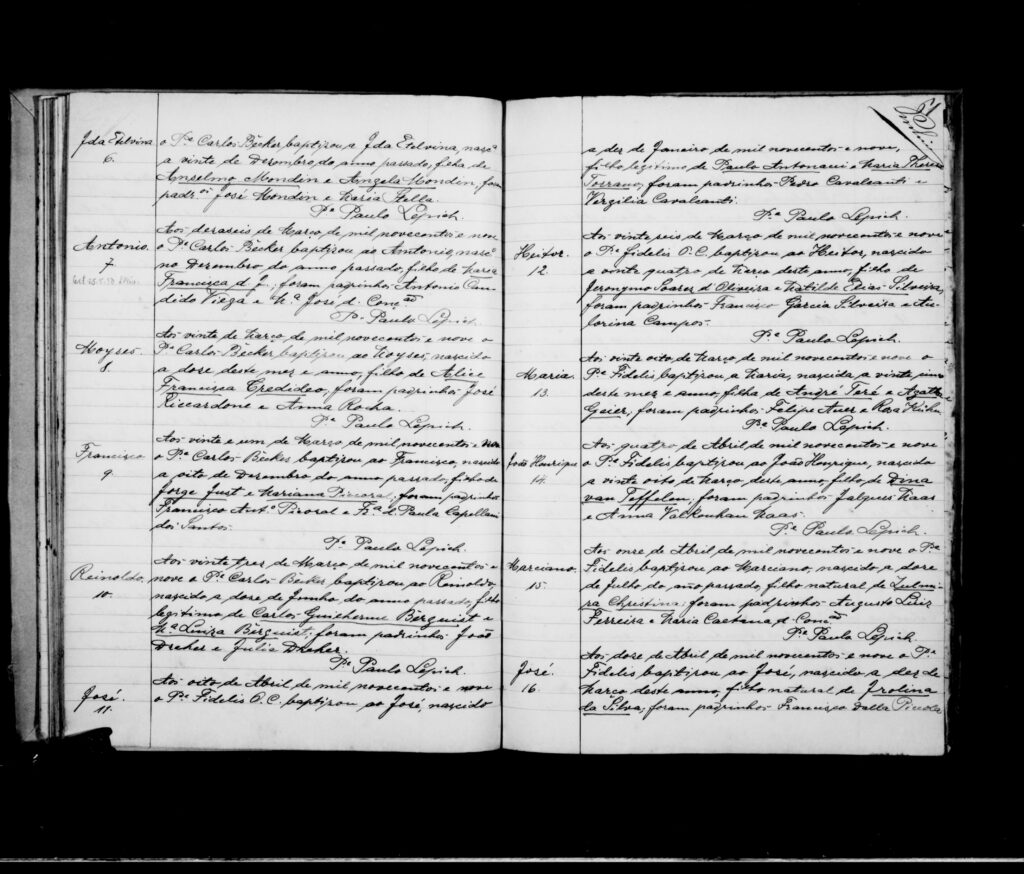 Ida Etelvina
6.
o Pe. Carlos Becker baptizou a Ida Etelvina, nasc.
a vinte de Dezembro do anno passado, filha de
Anselmo Mondin e Angela Mondin, foram
padr.os José Mondin e Maria Stella.
Pe. Paulo Lepich.
Antonio.
7
Aos dezaseis de Março de mil novecentos e nove
o Pe. Carlos Becker baptizou ao Antonio, nasc.
no Dezembro do anno passado, filho de Maria
Francisca d. J.; foram padrinhos Antonio Can-
dido Viega e M.a José d. Conç.ão
Pe. Paulo Lepich.
Moyses.
8
Aos vinte de Março de mil novecentos e nove o
Pe. Carlos Becker baptizou ao Moyses, nascido
a doze deste mez e anno, filho de Alice
Francisca Credideo, foram padrinhos José
Riccardone e Anna Rocha.
Pe. Paulo Lepich.
Francisco
9
Aos vinte e um de Março, de mil novecentos e nove
o Pe. Carlos Becker baptizou ao Francisco, nascido
a oito de Dezembro do anno passado, filho de
Jorge Just e Mariana Picoral; foram padrinhos
Francisco Ant.o Picoral e Fr.a d. Paula Capellani
dos Santos.
Pe. Paulo Lepich.
Reinoldo
10.
Aos vinte tres de Março de mil novecentos e
nove o Pe. Carlos Becker baptizou ao Reinoldo,
nascido a doze de Junho do anno passado, filho
legitimo de Carlos Guilherme Berguist e
M.a Luiza Berguist; foram padrinhos João
Dreher e Julia Dreher.
Pe. Paulo Lepich.
José.
11.
Aos oito de Abril de mil novecentos e nove
o Pe. Fidelis O.C. baptizou ao José, nascido
a dez de Janeiro de mil novecentos e nove,
filho legitimo de Paulo Antonauci e Maria Thereza
Torrano, foram padrinhos Pedro Cavalcanti e
Virgilia Cavalcanti.
Pe. Paulo Lepich.
Heitor.
12
Aos vinte seis de Março de mil novecentos e nove
o Pe. Fidelis O.C. baptizou ao Heitor, nascido
a vinte quatro de Março deste anno, filho de
Jeronymo Soares d'Oliveira e Matilde Elias Silveira,
foram padrinhos Francisco Garcia Silveira e Au-
lorina Campos.
Pe. Paulo Lepich.
Maria.
13.
Aos vinte oito de Março de mil novecentos e nove o
Pe. Fidelis baptizou a Maria, nascida a vinte um
deste mez e anno, filha de André Teré e Agathe
Geier, foram padrinhos Felipe Auer e Rosa
Pe. Paulo Lepich.
João Henrique
14.
Aos quatro de Abril de mil novecentos e nove
o Pe. Fidelis baptizou ao João Henrique, nascido
a vinte oito de Março, deste anno, filho de Dina
van Teffelen; foram padrinhos Jalques Kaas
e Anna Valkouhau Kaas.
Pe. Paulo Lepich.
Marciano.
15.
Aos onze de Abril de mil novecentos e nove o Pe.
Fidelis baptizou ao Marciano, nascido, a doze
de Julho do año passado filho natural de Zulmi-
ra Christina; foram padrinhos Augusto Luiz
Ferreira e Maria Caetana d. Conç.ão
Pe. Paulo Lepich.
José.
16.
Aos doze de Abril de mil novecentos e nove o Pe.
Fidelis baptizou ao José, nascido a dez de
Março deste anno, filho natural de Frolina
da Silva; foram padrinhos Francisco Dalla Piccola